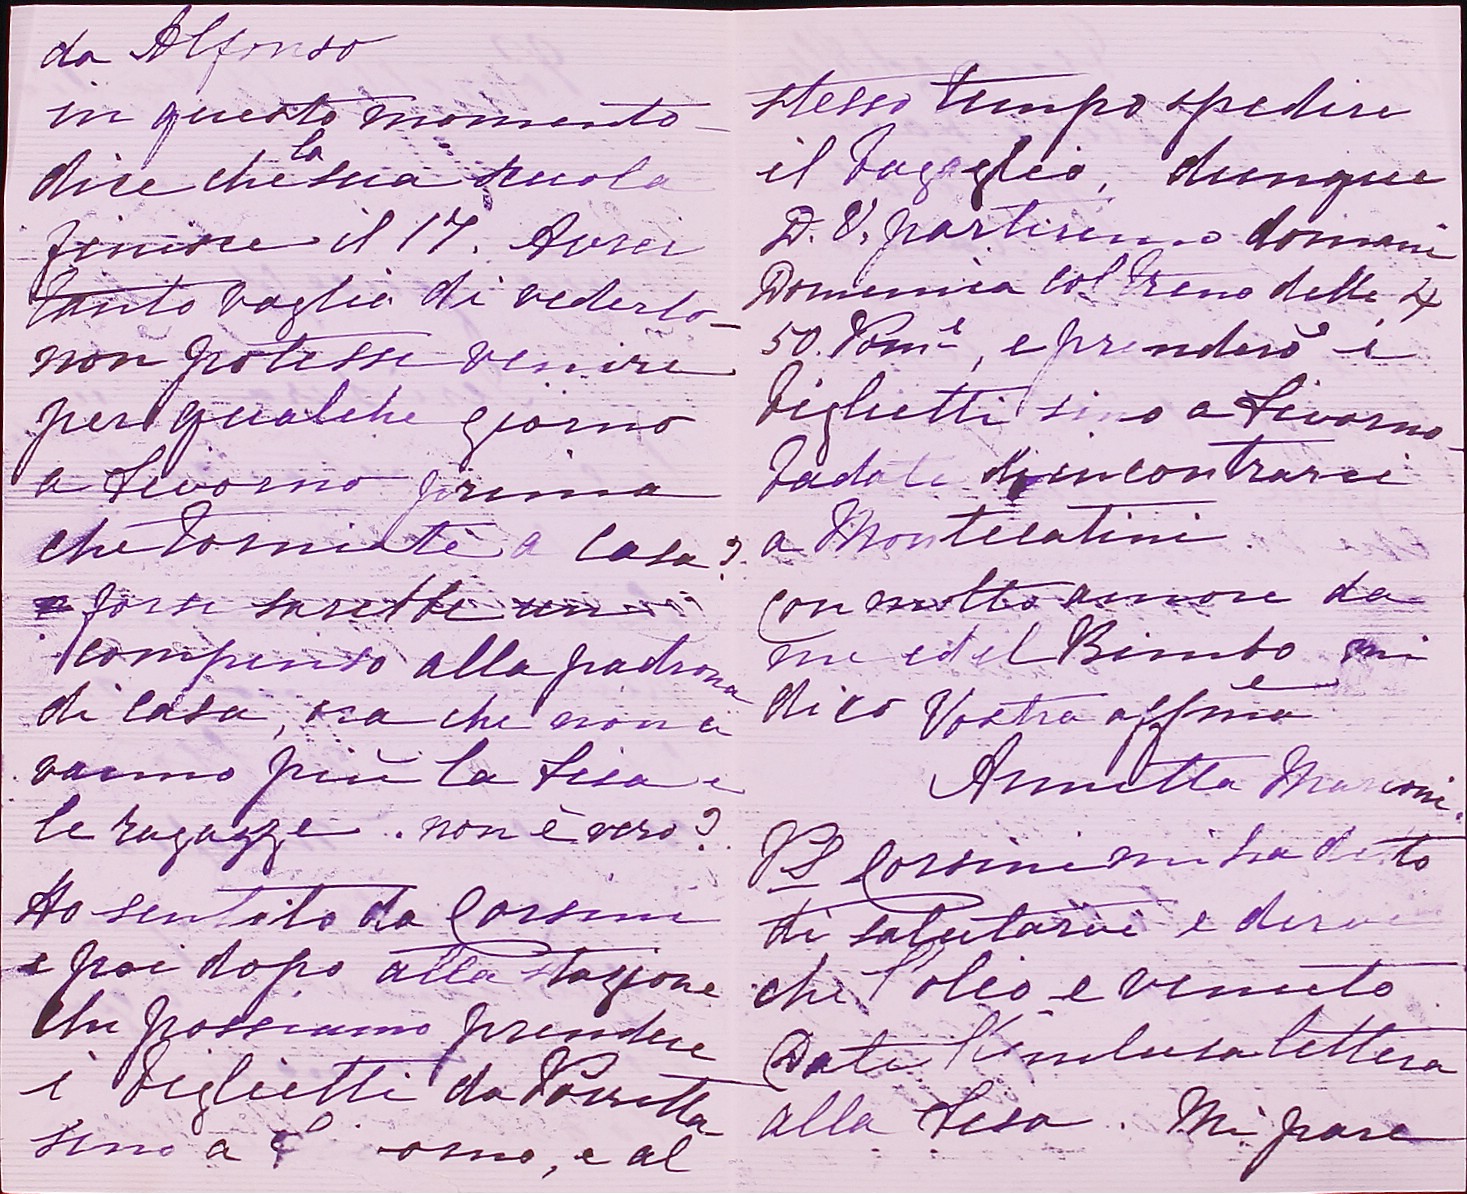 da Alfonso
in questo momento –
dice che la sua scuola
finisce il 17. Avrei
tanto voglia di vederlo –
non potesse venire
per qualche giorno
a Livorno prima
che torniate a casa?
e forse sarebbe un
compenso alla padrona
di casa, ora che non ci
vanno più la Lisa e
le ragazze. non è vero?
Ho sentito da Corsini
e poi dopo alla stazione
che possiamo prendere
i biglietti da Porretta
sino a Livorno, e al
stesso tempo spedire
il bagaglio, dunque
D.V. partiremo domani
Domenica col treno delle 4
50. Pomᵉ, e prenderò i
biglietti sino a Livorno –
badate di incontrarci
a Montecatini.
con molto amore da
me ed il Bimbo mi
dico Vostra affmᵃ
Annetta Marconi.
PS Corsini mi ha detto
di salutarvi e dirvi
che l'olio e venuto
Date l'inclusa lettera
alla Lisa. Mi pare